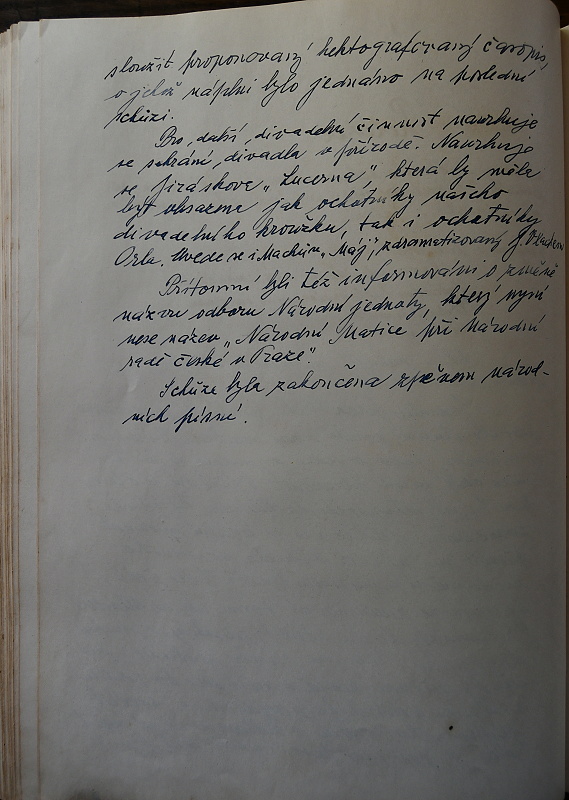 sloužit proponovaný hektografovaný časopis,
o jehož náplni bylo jednáno na poslední
schůzi.
Pro další divadelní činnost navrhuje
se sehrání divadla v přírodě. Navrhuje
se Jiráskova „Lucerna", která by měla
být obsazena jak ochotníky našeho
divadelního kroužku, tak i ochotníky
Orla. Uvede se i Máchův „Máj", zdramatizovaný J.
Přítomní byli též informováni o změně
názvu odboru Národní jednoty, který nyní
nese název „Národní Matice při Národní
radě české v Praze".
Schůze byla zakončena zpěvem národ-
ních písní.